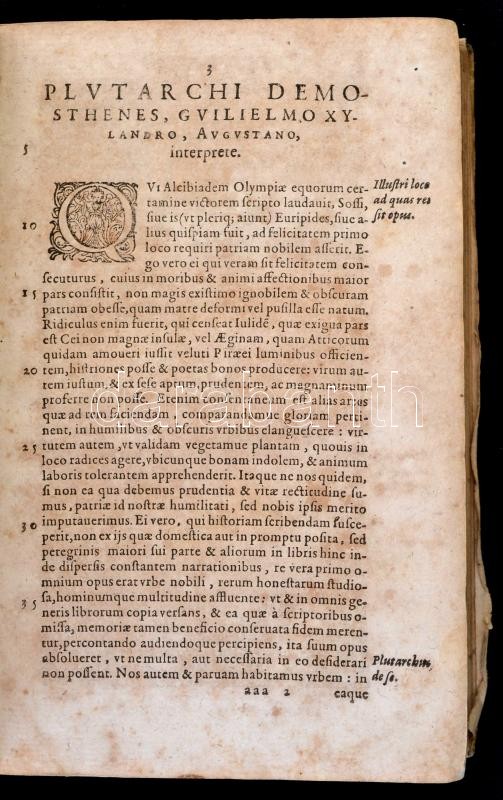 3
PLVTARCHI DEMO-
STHENES, GVILIELMO XY-
LANDRO, AVGVSTANO,
5
interprete.
QVI Alcibiadem Olympiæ equorum cer-
Illustri loco
tamine victorem scripto laudauit, Sossi,
ad quas res
siue is (vt pleriq; aiunt) Euripides, siue a-
sit opus.
10
lius quispiam fuit, ad felicitatem primo
loco requiri patriam nobilem asserit. E-
go vero ei qui veram sit felicitatem con-
secuturus, cuius in moribus & animi affectionibus maior
15 pars consistit, non magis existimo ignobilem & obscuram
patriam obesse, quam matre deformi vel pusilla esse natum.
Ridiculus enim fuerit, qui censeat Iulidē, quæ exigua pars
est Cei non magnæ insulæ, vel Æginam, quam Atticorum
quidam amoueri iussit veluti Piræei luminibus officien-
20 tem, histriones posse & poetas bonos producere: virum au-
tem iustum, & ex sese aptum, prudentem, ac magnanimum
proferre non posse. Etenim consentaneum est alias artes
quæ ad rem faciendam, comparandamue gloriam perti-
nent, in humilibus & obscuris vrbibus elanguescere: vir-
25 tutem autem, vt validam vegetamue plantam, quouis in
loco radices agere, vbicunque bonam indolem, & animum
laboris tolerantem apprehenderit. Itaque ne nos quidem,
si non ea qua debemus prudentia & vitæ rectitudine su-
mus, patriæ id nostræ humilitati, sed nobis ipsis merito
30 imputauerimus. Ei vero, qui historiam scribendam susce-
perit, non ex ijs quæ domestica aut in promptu posita, sed
peregrinis maiori sui parte & aliorum in libris hinc in-
de dispersis constantem narrationibus, re vera primo o-
mnium opus erat vrbe nobili, rerum honestarum studio-
35 sa, hominumque multitudine affluente: vt & in omnis ge-
neris librorum copia versans, & ea quæ à scriptoribus o-
missa, memoriæ tamen beneficio conseruata fidem meren-
tur, percontando audiendoque percipiens, ita suum opus
absolueret, vt ne multa, aut necessaria in eo desiderari
Plutarchus
non possent. Nos autem & paruam habitamus vrbem: in
de se.
aaa 2 eaque
darabanth